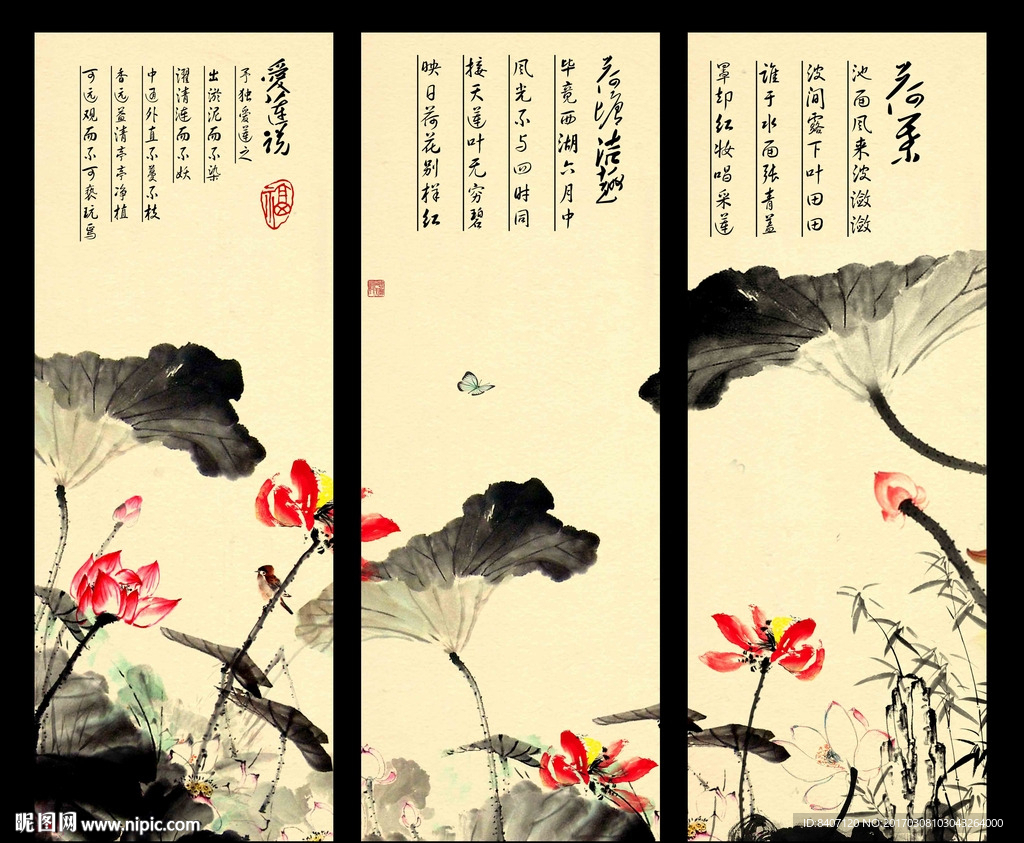 愛莲说
予独爱莲之
出淤泥而不染
濯清涟而不妖
中通外直不蔓不枝
香远益清亭亭净植
可远观而不可亵玩焉
福
荷塘洁趣
毕竟西湖六月中
风光不与四时同
接天莲叶无穷碧
映日荷花别样红
荷葉
池面风来波潋潋
波间露下叶田田
谁于水面张青盖
罩却红妆唱采莲
昵图网 www.nipic.com
ID:8407120 NO:20170308103043264000